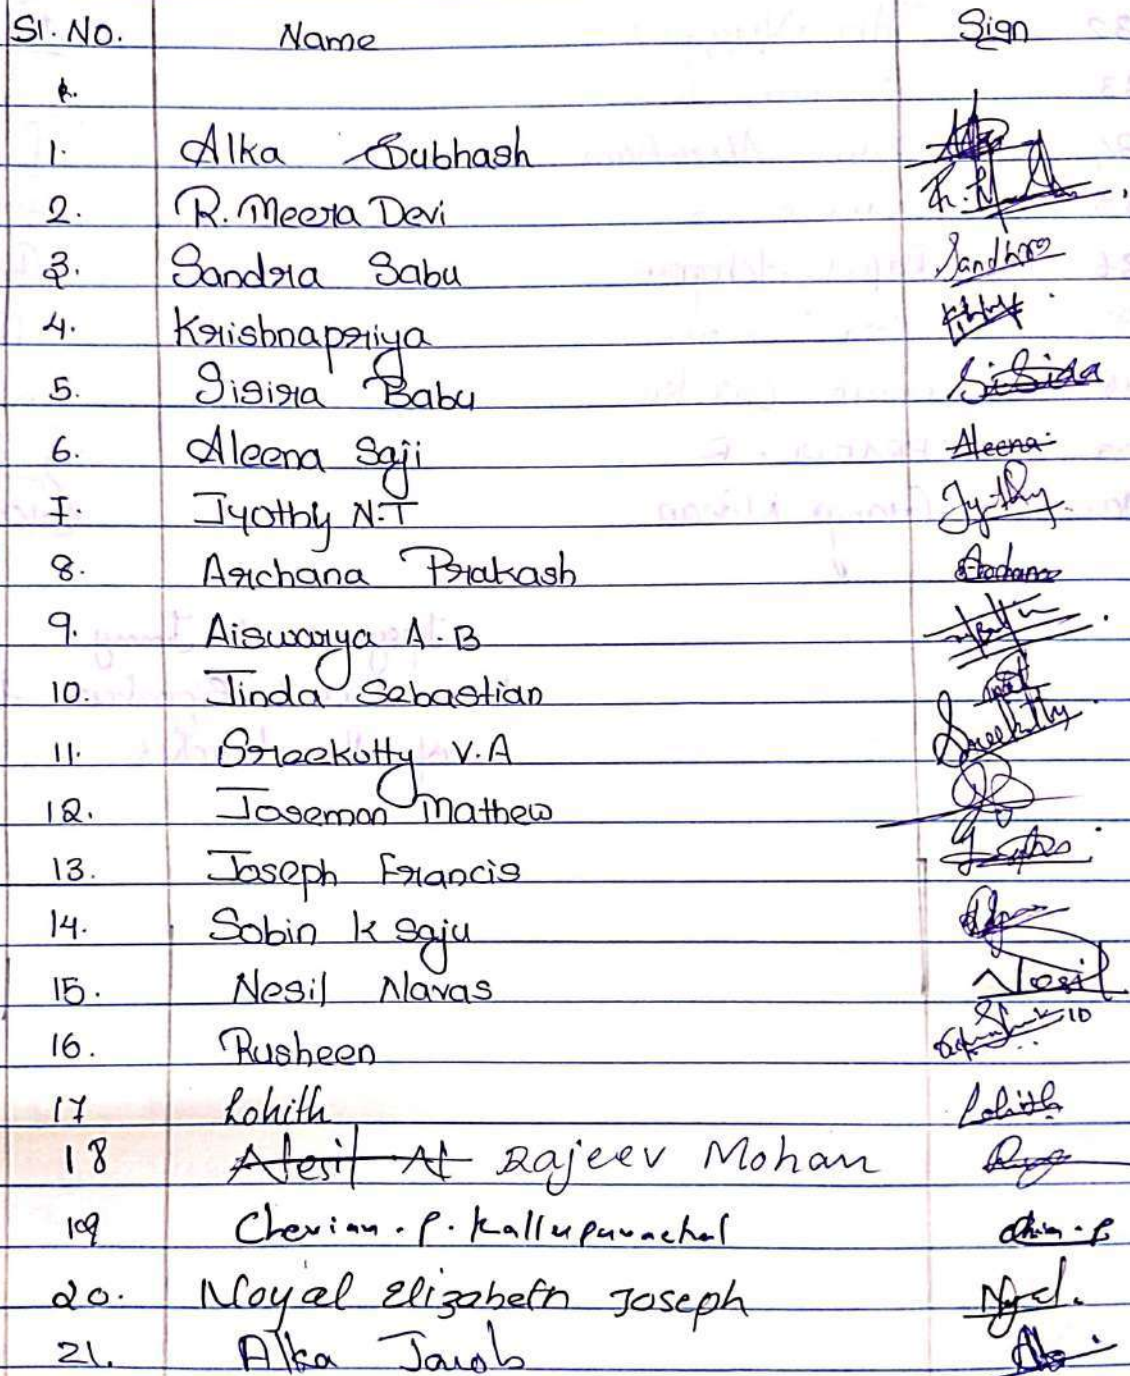 Sl. No. Name Sign
1. Alka Subhash
2. R. Meera Devi
3. Sandra Sabu Sandhra
4. Krishnapriya
5. Sisira Babu
6. Aleena Saji Aleena
7. Jyothy N.T Jyothy
8. Archana Prakash Archana
9. Aiswarya A.B
10. Jinda Sebastian
11. Sreekutty V.A Sreekutty
12. Josemon Mathew
13. Joseph Francis
14. Sobin K Saju
15. Nesil Navas Nesil
16. Rusheen
17 Lohith Lohith
18 Rajeev Mohan
19 Cherian . P. Kallupurackal
20. Noyal Elizabeth Joseph
21. Alka Jacob